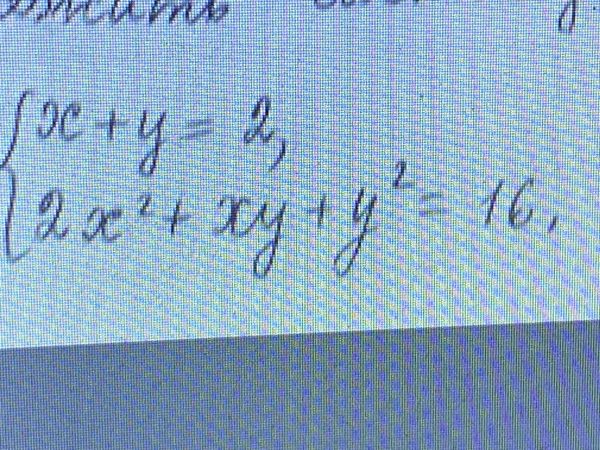 x + y = 2,
2x² + xy + y² = 16,